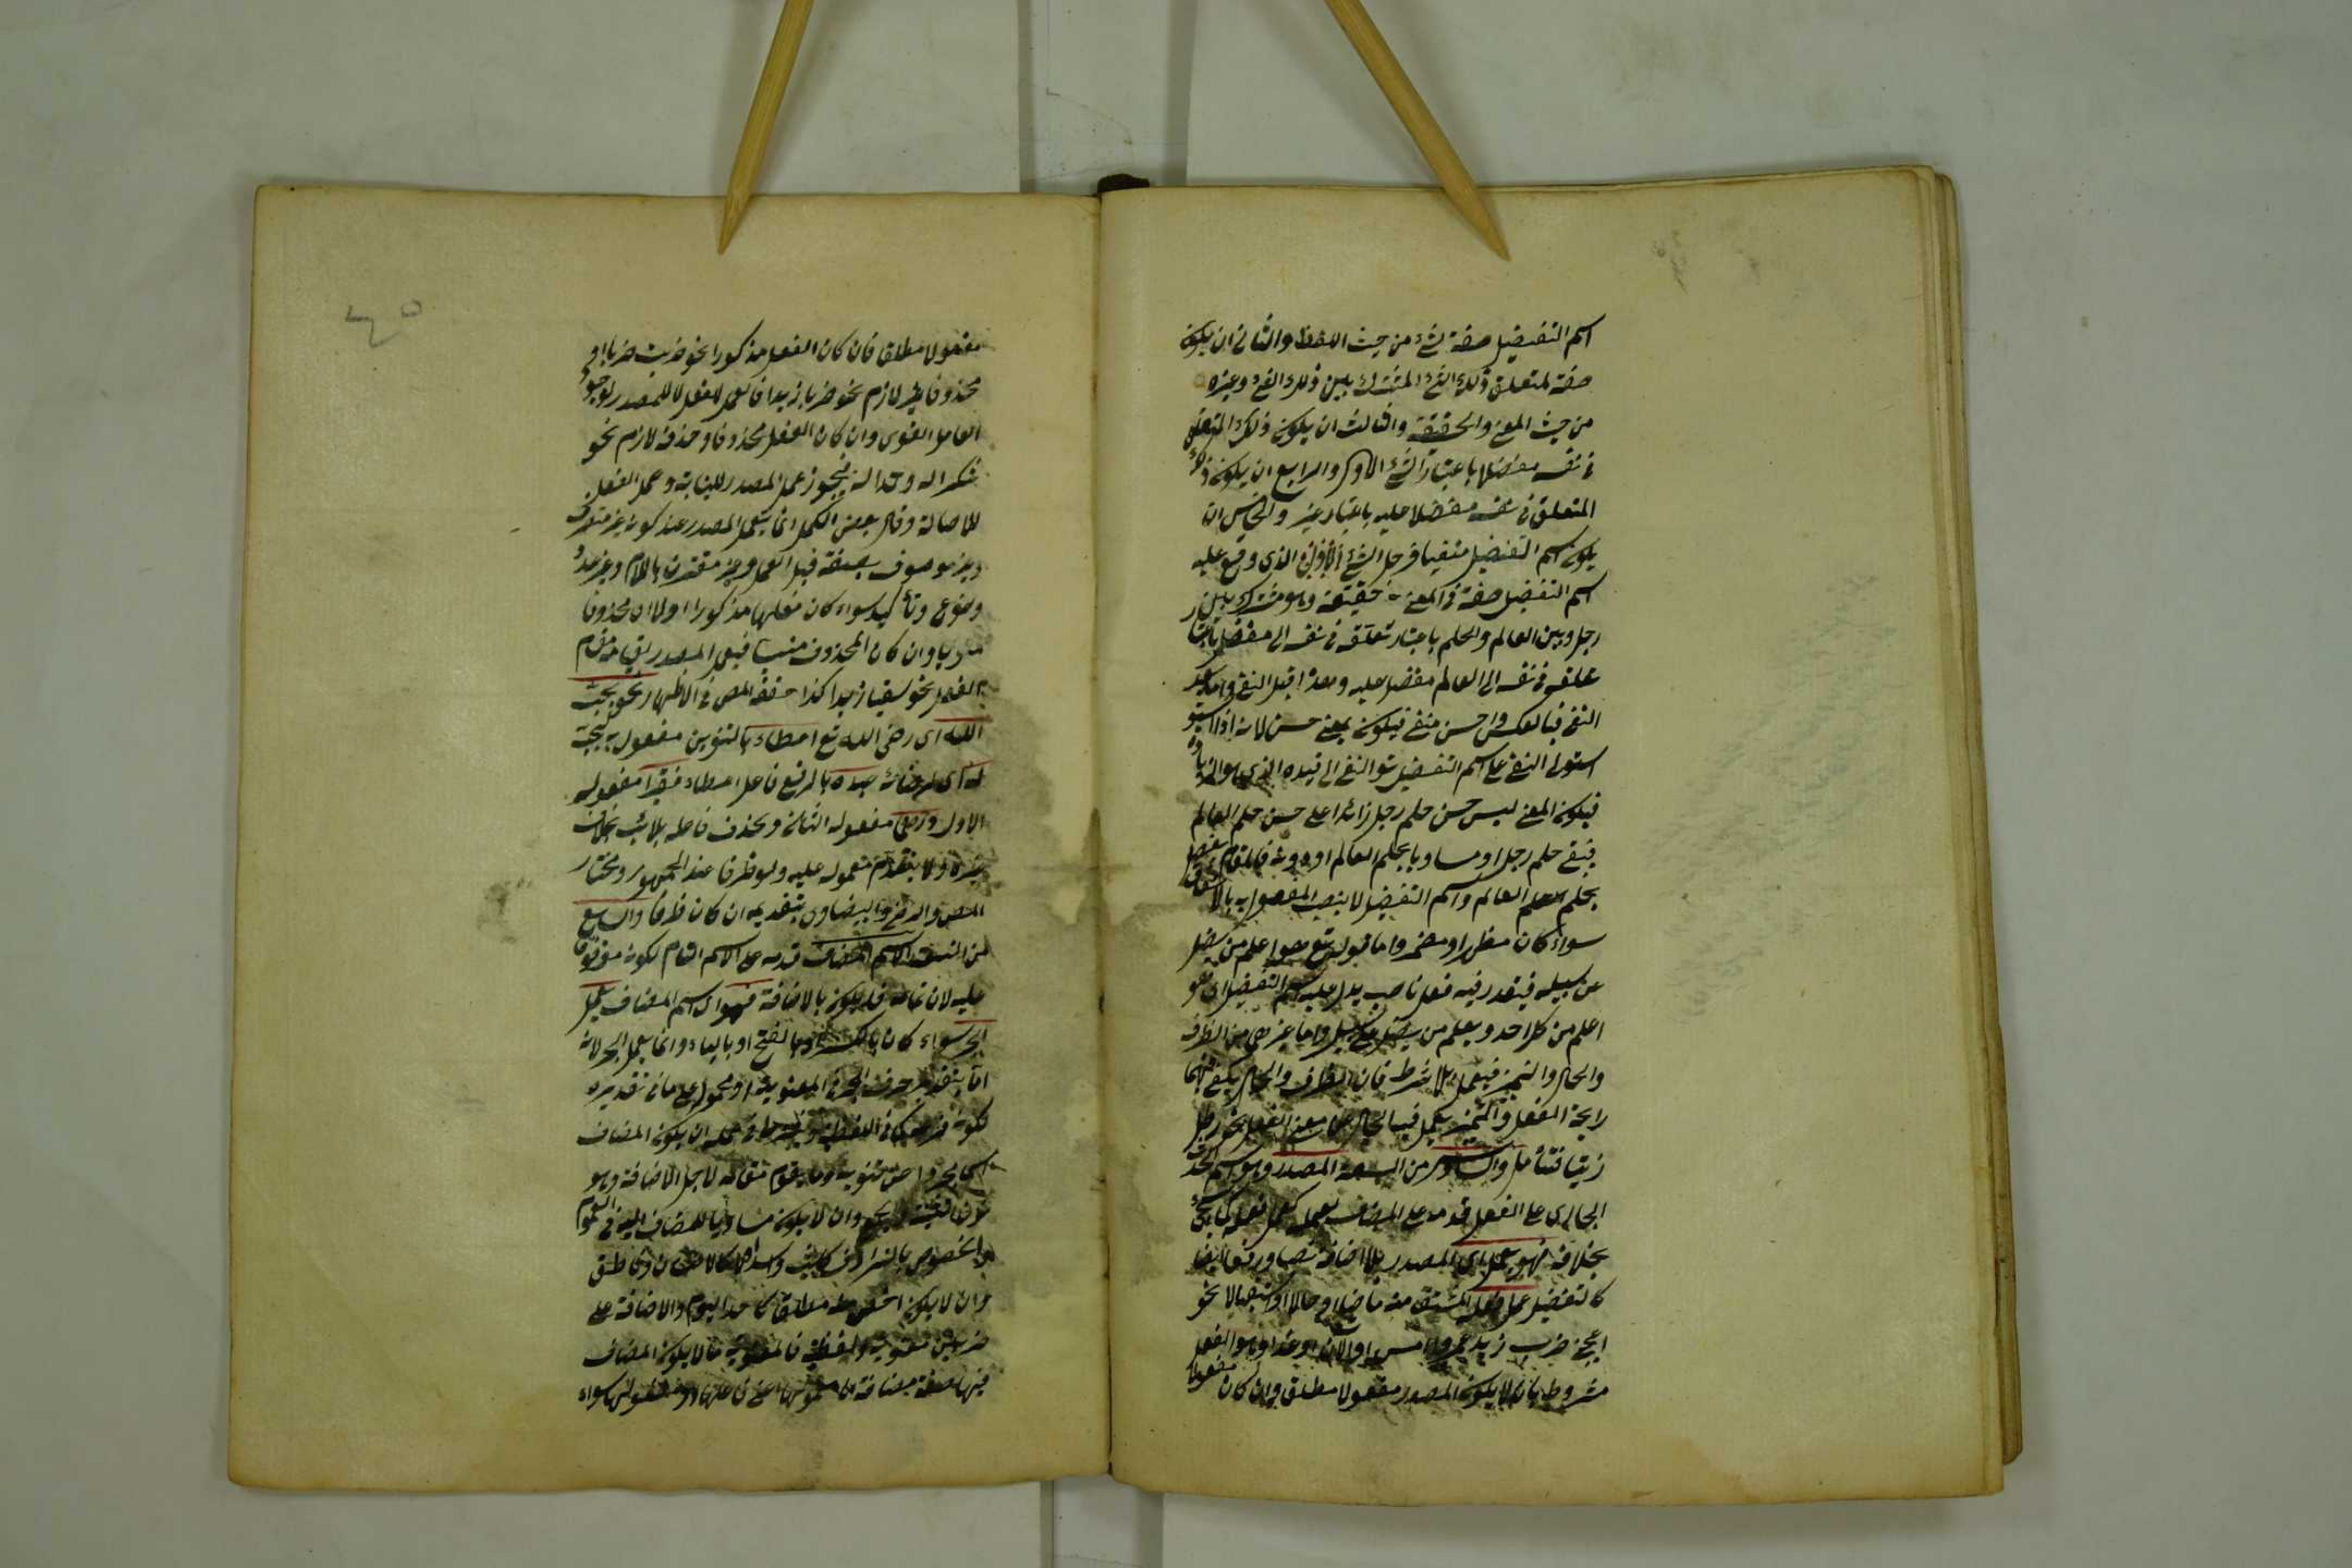 اسم التفضيل صفة لشئ من حيث اللفظ والثانى ان يكون
صفة لمتعلق ذلك الشئ المشترك بين ذلك الشئ وغيره
من حيث المعنى والحقيقة والثالث ان يكون ذلك المتعلق
فى نفسه مفضلا باعتبار الشئ الاول والرابع ان يكون ذلك
المتعلق فى نفسه مفضلا عليه باعتبار غيره والخامس ان
يكون اسم التفضيل منفيا فرجل الشئ الاول الذى وقع عليه
اسم التفضيل صفة فى المعنى حقيقة وهو مشترك بين
رجل وبين العالم والحلم باعتبار تعلقه فى نفسه الى مفضل
علقه فى نفسه الى العالم مفضل عليه وهذا قبل النفى واما بعد
النفى فبالعكس واحسن منفى فيكون بمعنى حسن لانه اذا
استولى النفى على اسم التفضيل توالنفى الى قيده الذى هو الزيادة
فيكون المعنى ليس حسن حلم رجل زائدا على حسن حلم العالم
فبقى حلم رجل او مساويا بحلم العالم او دونه فالمقام
بحلم العالم واسم التفضيل لا ينصب المفعول به بالاتفاق
سواء كان مظهرا او مضمرا واما قوله تع هو اعلم من يضل
عن سبيله فيقدر فيه فعل ناصب يدل عليه اسم التفضيل اى هو
اعلم من كل احد ويعلم من يضل عن سبيله واما غيرهن من الظرف
والحال والتميز فيعمل بلا شرط فان الظرف والحال يكفى فيهما
رايحة الفعل والتميز يعمل فيه الخالى عن معنى الفعل نحو رطل
زيتا فتأمل والسادس من التسعة المصدر وهو اسم الحدث
الجارى على الفعل قدمه على المضاف لعمله كعمل فعله
بخلافه فهو يعمل اى المصدر بلا اضافة نصبا ورفعا ايضا
كالتفضيل عمل فعله المشتق منه ماضيا او حالا او استقبالا نحو
اعجبنى ضرب زيد عمروا امس او الآن او غدا وهو الفعل
مشروط بان لا يكون المصدر مفعولا مطلقا وان كان مفعولا
٤٥
مفعولا مطلقا فان كان الفعل مذكورا نحو ضربت ضربا او
محذوفا غير لازم نحو ضربا زيدا فالعمل للفعل لا للمصدر لوجود
العامل القوى وان كان الفعل محذوفا وحذفه لازم نحو
شكرا له وحمدا له فيجوز عمل المصدر للنيابة وعمل الفعل
للاصالة وقال بعض الكمل انما يعمل المصدر عند كونه غير
وغير موصوف بصفة قبل العمل وغير مقترن باللام وغير عدد
ونوع وتأكيد سواء كان فعلها مذكورا اولا او محذوفا
وان كان المحذوف منسيا فيعمل المصدر لقيامه مقام
الفعل نحو سقيا زيدا كذا حققه المص فى الاظهار نحو يحب
الله اى رضى الله تع اعطاء بالتنوين مفعول به يحب
له اى لرضائه عبده بالرفع فاعل اعطاء فقيرا مفعوله
الاول ودرهما مفعوله الثانى ويحذف فاعله بلا نائب بخلاف
غيره ولا يتقدم معموله عليه ولو ظرفا عند الجمهور ومختار
المص والرضى والبيضاوى بتقديمه ان كان ظرفا والسابع
من التسعة الاسم المضاف قدمه على الاسم التام لكونه موقوفا
عليه لان تمامه قد يكون بالاضافة فهو اى اسم المضاف يعمل
الجر سواء كان بالكسر او بالفتح او بالياء وانما يعمل الجر لانه
اما بتقدير حرف الجر فى المعنوية او محمول على ما فى تقديره
لكونه فى اللفظية وشرط عمله ان يكون المضاف
اسما مجردا عن تنوينه وما يقوم مقامه لاجل الاضافة وهو
وان لا يكون مساويا للمضاف اليه فى العموم
والخصوص بالترادف كليث واسد
وان لا يكون اخص منه مطلقا كاحد اليوم والاضافة على
ضربين معنوية ولفظية فالمعنوية ما لا يكون المضاف
فيها صفة مضافة الى معمولها اعنى فاعلها او مفعولها سواء